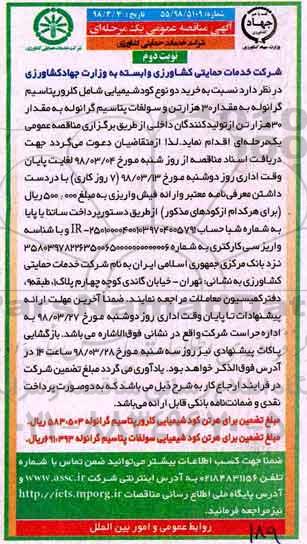 شماره: ۵۵/۹۸/۵۱۰۹ تاریخ: ۹۸/۳/۴
آگهی مناقصه عمومی یک مرحله‌ای
شرکت خدمات حمایتی کشاورزی
وزارت جهاد کشاورزی
شرکت خدمات حمایتی کشاورزی
نوبت دوم
شرکت خدمات حمایتی کشاورزی وابسته به وزارت جهادکشاورزی
در نظر دارد نسبت به خرید دو نوع کودشیمیایی شامل کلرورپتاسیم
گرانوله به مقدار ۳۰ هزار تن و سولفات پتاسیم گرانوله به مقدار
۳۰ هزار تن از تولیدکنندگان داخلی از طریق برگزاری مناقصه عمومی
یک‌مرحله‌ای اقدام نماید. لذا از متقاضیان دعوت می‌گردد جهت
دریافت اسناد مناقصه از روز شنبه مورخ ۹۸/۰۳/۰۴ لغایت پایان
وقت اداری روز دوشنبه مورخ ۹۸/۰۳/۱۳ (۷ روز کاری) با در دست
داشتن معرفی‌نامه معتبر و ارائه فیش واریزی به مبلغ ۵۰۰،۰۰۰ ریال
(برای هر کدام از کودهای مذکور) از طریق دستور پرداخت ساتنا یا پایا
به شماره شبا حساب IR-۲۵۰۱۰۰۰۰۴۰۰۱۰۳۹۷۰۴۰۰۵۷۹۱ و با شناسه
واریز سی رکترنی به شماره
نزد بانک مرکزی جمهوری اسلامی ایران به نام شرکت خدمات حمایتی
کشاورزی به نشانی: تهران - خیابان گاندی کوچه چهارم پلاک ۱، طبقه ۹،
دفتر کمیسیون معاملات مراجعه نمایند. ضمناً آخرین مهلت ارائه
پیشنهادات تا پایان وقت اداری روز دوشنبه مورخ ۹۸/۰۳/۲۷ به
اداره حراست شرکت واقع در نشانی فوق‌الاشاره می‌باشد. بازگشایی
پاکات پیشنهادی نیز روز سه شنبه مورخ ۹۸/۰۳/۲۸ ساعت ۱۴ در
آدرس فوق‌الذکر خواهد بود. یادآوری می‌گردد مبلغ تضمین شرکت
در فرایند ارجاع کار به شرح ذیل می‌باشد که به دو صورت پرداخت
نقدی و ضمانت‌نامه بانکی قابل ارائه می‌باشد.
مبلغ تضمین برای هر تن کود شیمیایی کلرور پتاسیم گرانوله ۵۸۳،۵۰۳ ریال.
مبلغ تضمین برای هر تن کود شیمیایی سولفات پتاسیم گرانوله ۶۹۱،۳۹۳ ریال.
ضمناً جهت کسب اطلاعات بیشتر می‌توانید ضمن تماس با شماره
تلفن ۰۲۱۸۴۸۳۱۱۵۶ به آدرس اینترنتی شرکت www.assc.ir و
آدرس پایگاه ملی اطلاع رسانی مناقصات http://iets.mporg.ir
نیز مراجعه فرمائید.
روابط عمومی و امور بین الملل
۱۸۹